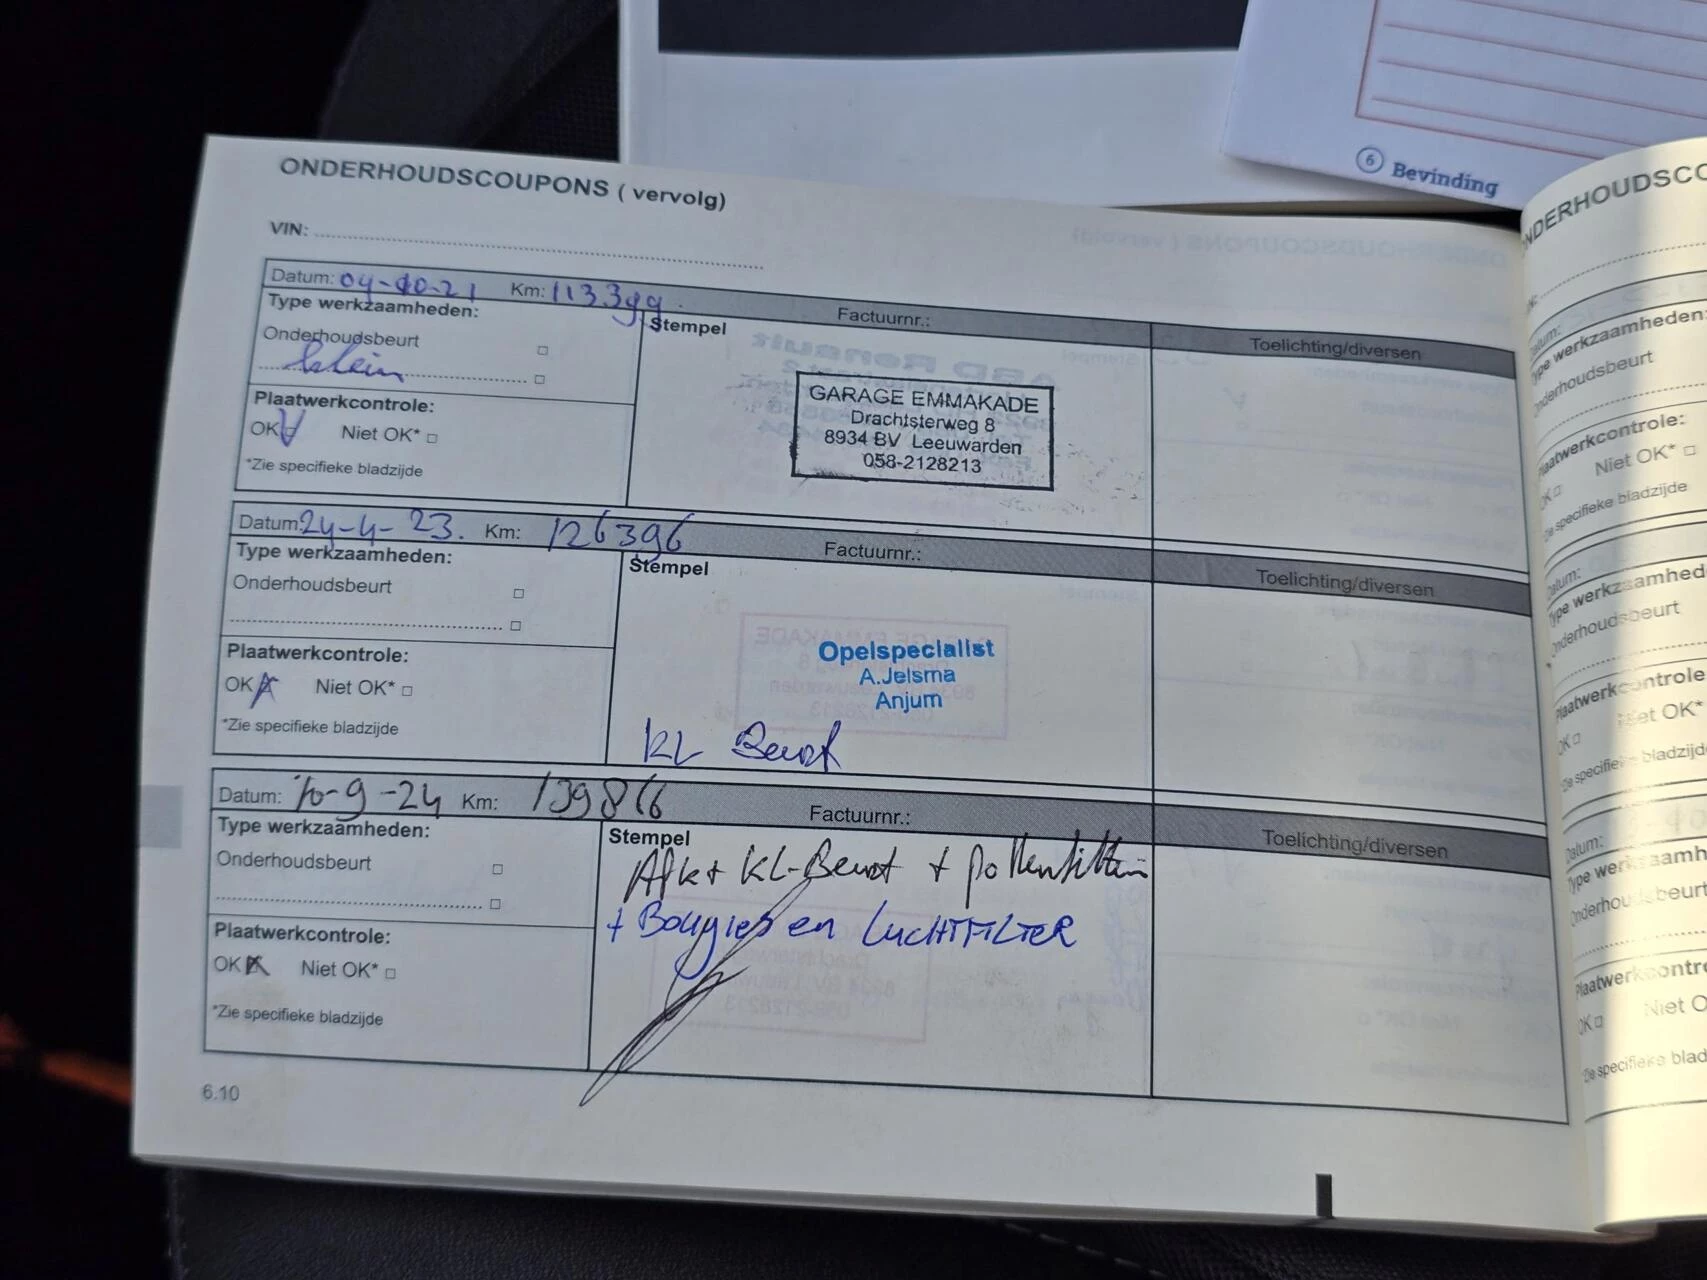 6 Bevinding
ONDERHOUDSCOUPONS ( vervolg)
VIN:
Datum: 04-10-21 Km: 113399 Factuurnr.:
Type werkzaamheden:
Stempel
Toelichting/diversen
Onderhoudsbeurt
klein
Plaatwerkcontrole:
OK Niet OK*
*Zie specifieke bladzijde
GARAGE EMMAKADE
Drachtsterweg 8
8934 BV Leeuwarden
058-2128213
Datum: 24-4-23. Km: 126396 Factuurnr.:
Type werkzaamheden:
Stempel
Toelichting/diversen
Onderhoudsbeurt
Plaatwerkcontrole:
OK Niet OK*
*Zie specifieke bladzijde
Opelspecialist
A.Jelsma
Anjum
KL Beurt
Datum: 10-9-24 Km: 139866 Factuurnr.:
Type werkzaamheden:
Stempel
Toelichting/diversen
Onderhoudsbeurt
Plaatwerkcontrole:
OK Niet OK*
*Zie specifieke bladzijde
Apk + KL-Beurt + pollenfilter
+ Bougies en LUCHTFILTER
6.10
Datum:
Type werkzaamheden:
Onderhoudsbeurt
Plaatwerkcontrole:
Niet OK*
*Zie specifieke bladzijde
Datum:
Onderhoudsbeurt
Plaatwerkcontrole
OK Niet OK*
Datum:
Onderhoudsbeurt
OK Niet O